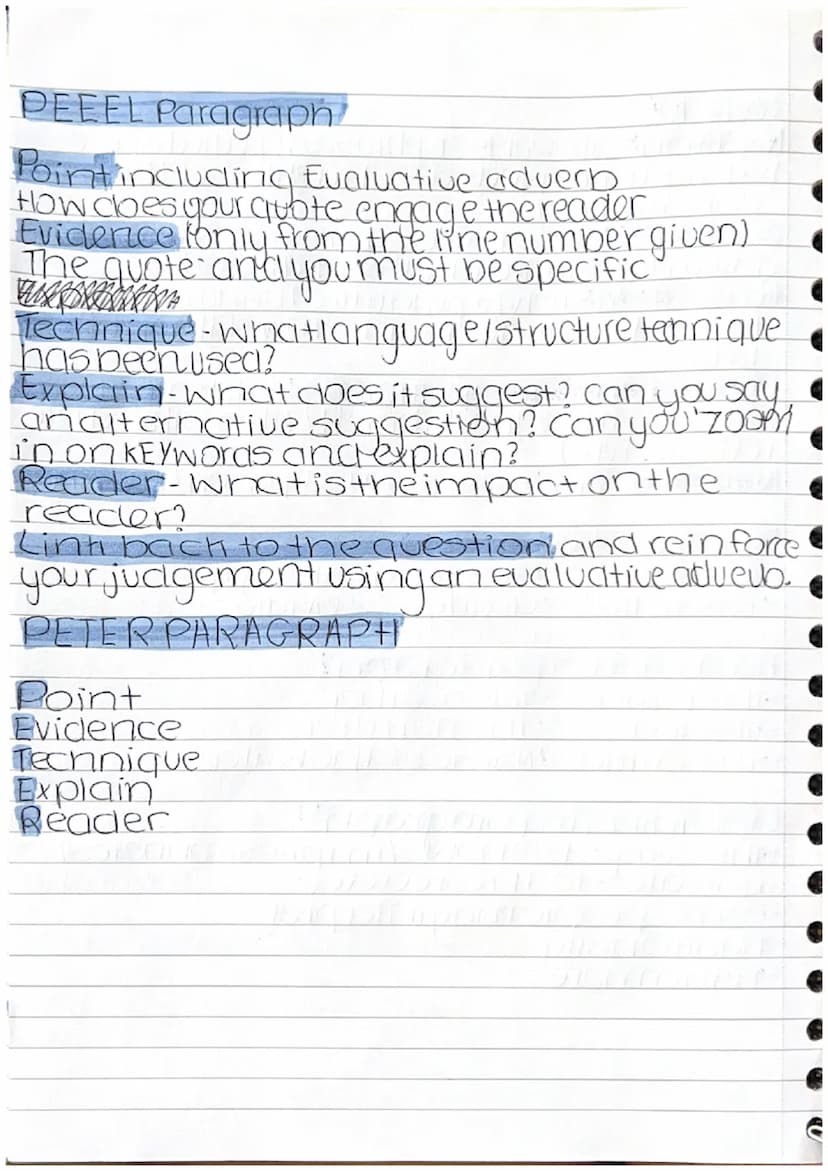 PEEEL Paragraph
Point including Evaluative adverb
How does your quote engage the reader
Evidence (only from the line number given)
The quote and you must be specific
Technique - what language/structure technique
has been used?
Explain - what does it suggest? can you say
an alternative suggestion? can you 'zoom
in on KEY words and explain?
Reader - what is the impact on the
reader?
Link back to the question, and reinforce
your judgement using an evaluative adverb.
PETER PARAGRAPH
Point
Evidence
Technique
Explain
Reader